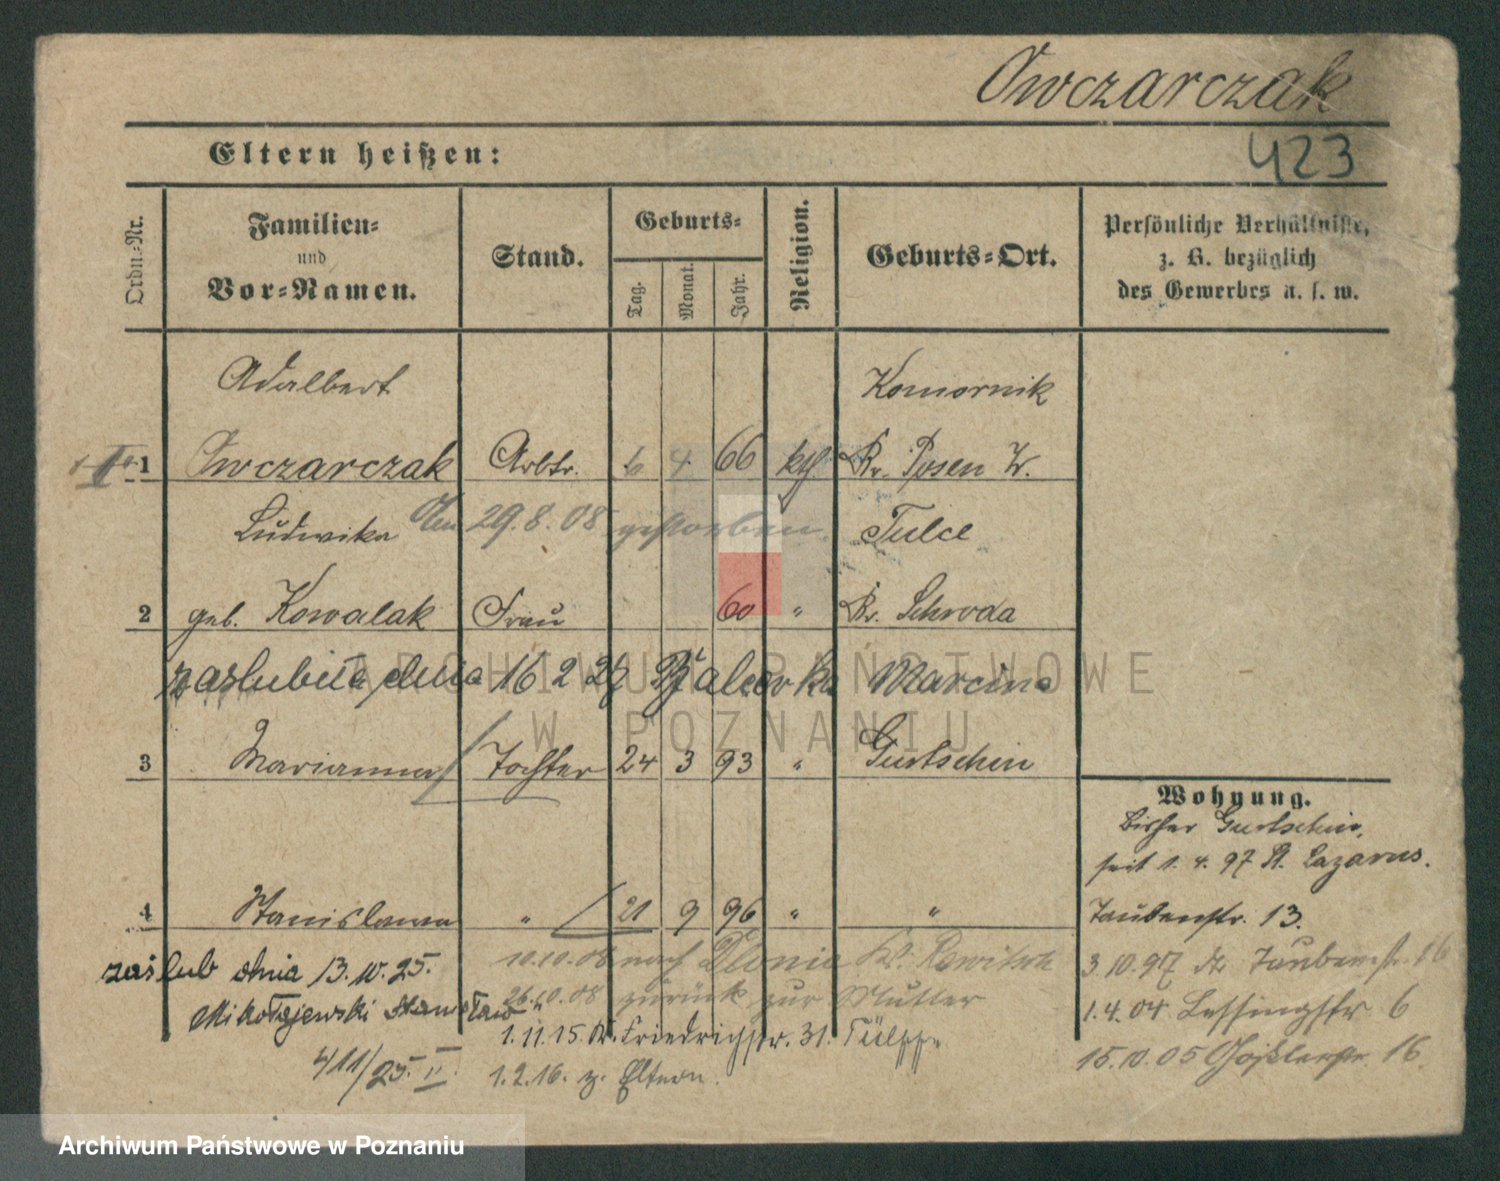 Owczarczak
Eltern heißen:
423
Ordn.-Nr.
Familien-
und
Vor-Namen.
Stand.
Geburts-
Tag.
Monat.
Jahr.
Religion.
Geburts-Ort.
Persönliche Verhältnisse,
z. B. bezüglich
des Gewerbes u. s. w.
Adalbert Komornik
1 Owczarczak Arbtr. 6 4 66 kth. Kr. Posen W.
Ludwika Am 29.8.08 gestorben Tulce
2 geb. Kowalak Frau 60 " Kr. Schroda
zaślubiła dnia 16 2 27 Marcina
3 Marianna Tochter 24 3 93 " Gurtschin
Wohnung.
bisher Gurtschin,
seit 1. 4. 97 St. Lazarus.
4 Stanislawa " 21 9 96 " "
Taubenstr. 13.
zaślub dnia 13.10.25.
10.10.08 nach Dlonie Kr. Rawitsch
3.10.97 Taubenstr. 16
Mikołajewski Stanisław
26.10.08 zurück zur Mutter
1.4.04 Lessingstr 6
1.11.15. Friedrichstr. 31.
411/25. II.
1.2.16. z. Eltern.
15.10.05 Goßlerstr. 16
ARCHIWUM PAŃSTWOWE
W POZNANIU
Archiwum Państwowe w Poznaniu